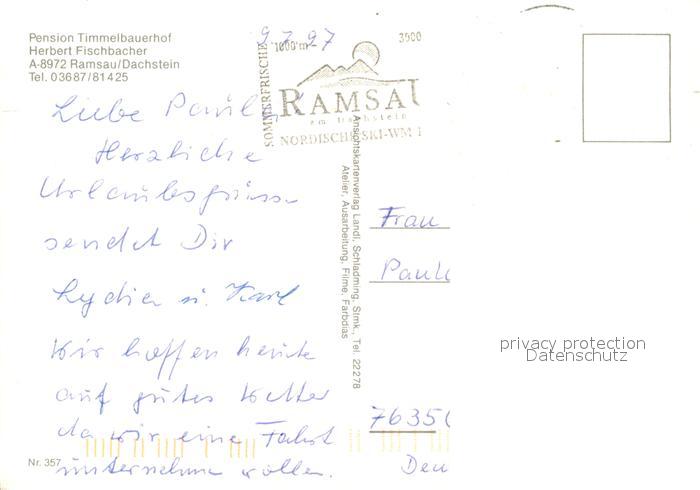 Pension Timmelbauerhof
Herbert Fischbacher
A-8972 Ramsau/Dachstein
Tel. 03687/81425
9.7.97
1000 m
3000
SOMMERFRISCHE
RAMSAU
am Dachstein
NORDISCHE SKI-WM 1
Liebe Paula
Herzliche
Urlaubsgrüsse
sendet Dir
Lydia u. Karl
Wir hoffen heute
auf gutes Wetter
da wir eine Fahrt
unternehmen wollen.
Nr. 357
Ansichtskartenverlag Landl, Schladming, Stmk., Tel. 22278
Atelier, Ausarbeitung, Filme, Farbdias
Frau
Paul
7635
Deu
privacy protection
Datenschutz